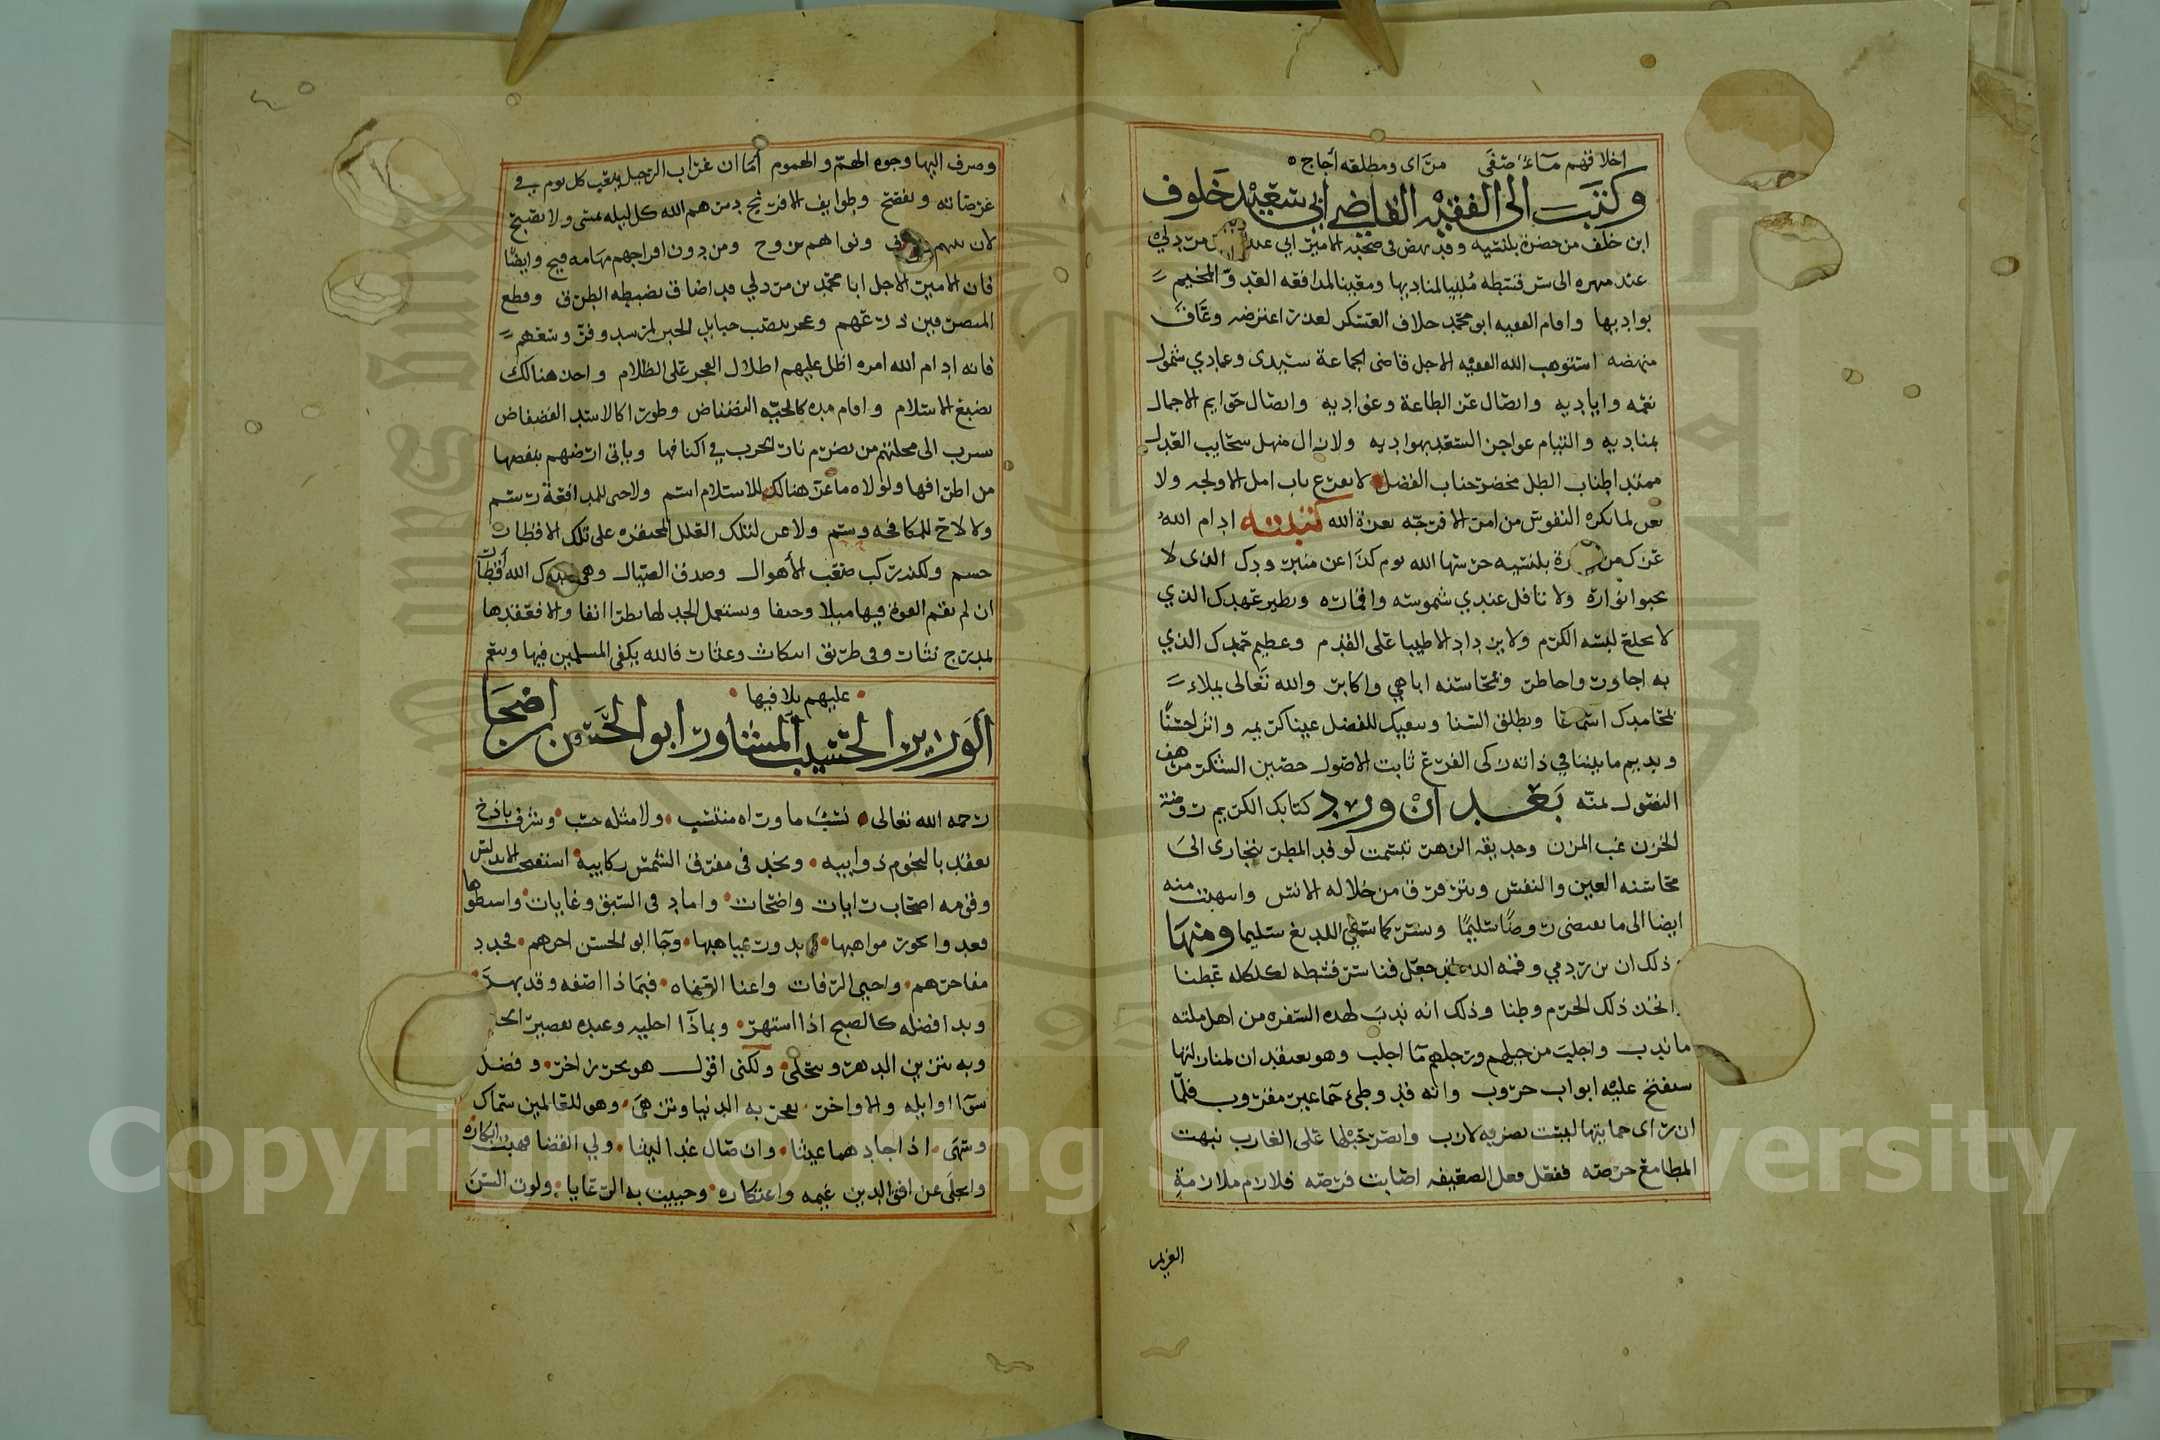 اخلاقهم ماء صفى من راى ومطلقه أجاج
وكتبت الى الفقيه القاضي ابي سعيد خلوف
ابن خلف من حضرة بلنسيه وقد نهض في صحبة الامير ابي عبد من مردلي
عند مسيره الى سرقسطه ملبيا لمناديها ومعينا لمدافعة العدو المخيم
بواديها واقام الفقيه ابو محمد خلاف العسكر لعذر اعترضه وعاق
منهضه استوهب الله الفقيه الاجل قاضي الجماعة سيدى وعمادي شمول
نعمه واياديه واتصال عز الطاعة وعواديه واتصال حوايم الاجمال
بناديه والتيام عواجز السعد بهواديه ولا زال منهل سحايب العدل
ممتد اطناب الظل مخضر جناب الفضل لا يقرع باب امل الا ولجه ولا
لما تكره النفوس من امر الا فرجه بعزة الله كتبته ادام الله
عزك من بلنسيه حرسها الله يوم كذا عن منير ودك الذى لا
تخبو انواره ولا تافل عندي شموسه واقماره ونظير عهدك الذي
لا يخلع لبسه الكرم ولا يزداد الا طيبا على القدم وعظيم حمدك الذي
به اجاور واحاضر وبمحاسنه اباهي واكابر والله تعالى يملاء
بمحامدك اسماعا ويطلق السنا ويبقيك للفضل عينا كريمه واثر احسنا
ويديم ما بيننا في ذاته زكى الفرع ثابت الاصول حصين الشكر مرهف
النصول بمنه بعد ان ورد كتابك الكريم روضة
الحزن غب المزن وحديقة الزهر تبسمت لوفد المطر يتجارى الى
محاسنه العين والنفس ويترقرق من خلاله الانس وانتهيت منه
ايضا الى ما يقتضى رضا سليما ويسر كما سمي اللديغ سليما ومنها
وذلك ان بن ردمير وقمه الله جعل فنا سرقسطه لكلكله عطنا
واتخذ ذلك الحرم وطنا وذلك انه ندب لهذه السفره من اهل ملته
ما ندب واجلب من خيلهم ورجلهم ما اجلب وهو يعتقد ان لمنازلتها
ستفتح عليه ابواب حروب وانه قد وطئ حما غير مقروب فلما
ان راى حمايتها ليست بضربه لازب وابصر حبلها على الغارب نبهت
المطامع حرصه ففعل فعل الضعيفه اصابت فرصه فلازم ملازمة
الغريم
وصرف اليها وجوه الهمم والهموم أما ان غراب الرحيل ينعب كل يوم في
عرصاته ويفتح وطوايف الافرنج دمرهم الله كل ليله تمسى ولا تصبح
لان ونواهم نزوح ومن دون افراجهم مهامه فيح وايضا
فان الامير الاجل ابا محمد بن مردلي قد اضاق بضبطه الطرق وقطع
المتصرفين ذرعهم وعمر بنصب حبايل الخير لمن سد وفرق وسعهم
فانه ادام الله امره اطل عليهم اطلال الفجر على الظلام واحد هنالك
بضبع الاسلام واقام مره كالحية النضناض وطورا كالاسد الفضفاض
يسرب الى محلتهم من يضرم نار الحرب في اكنافها وياتى ارضهم ينقصها
من اطرافها ولولاه ما عز هنالك للاسلام اسم ولاحى للمدافعة رسم
ولا لاح للمكافحه وسم ولا عن لتلك العلل المحتضره على تلك الاقطار
حسم ولكنه ركب صعب الأهوال وصدق الصيال وهى الله أقطار
ان لم تقم القوة فيها ميلا وحيفا ويستعمل الجد لها نظرا انفا والا فعقدها
لمدرج نثار وفى طريق انتكاث وعثار فالله يكفى المسلمين فيها ويتم
عليهم تلافيها
ألوزير الحسيب المشاور ابو الحسن بن اضحا
رحمه الله تعالى نسب ما وراه منتسب ولا مثله حسب وشرف باذخ
تعقد بالنجوم ذوايبه وتخد فى مفرق الشمس ركايبه استفتح الاندلس
وقومه اصحاب رايات واضحات واماد فى السبق وغايات واستطوها
فعدوا بحور مواهبها وبدور غياهبها وجا ابو الحسن اخرهم فجدد
مفاخرهم واحيى الرفات واعنا العفاه فبماذا اصفه وقد بهر
وبدا فضله كالصبح اذا استهر وبماذا احليه وعنده تقصير الحا
وبه تتزين الدهر وتحلى ولكنى اقول هو بحر زاخر وفضل
سوا اوايله والاواخر تعجر به الدنيا وتزهى وهو للعالمين سماك
وسهى اذا جاد هما عيثا وان صال غدا ليثا ولي القضا فهيت انكاره
وانجلى عن افق الدين غيمه واعتكاره وحييت به الرعايا ولون السر
Copyright © King Saud University